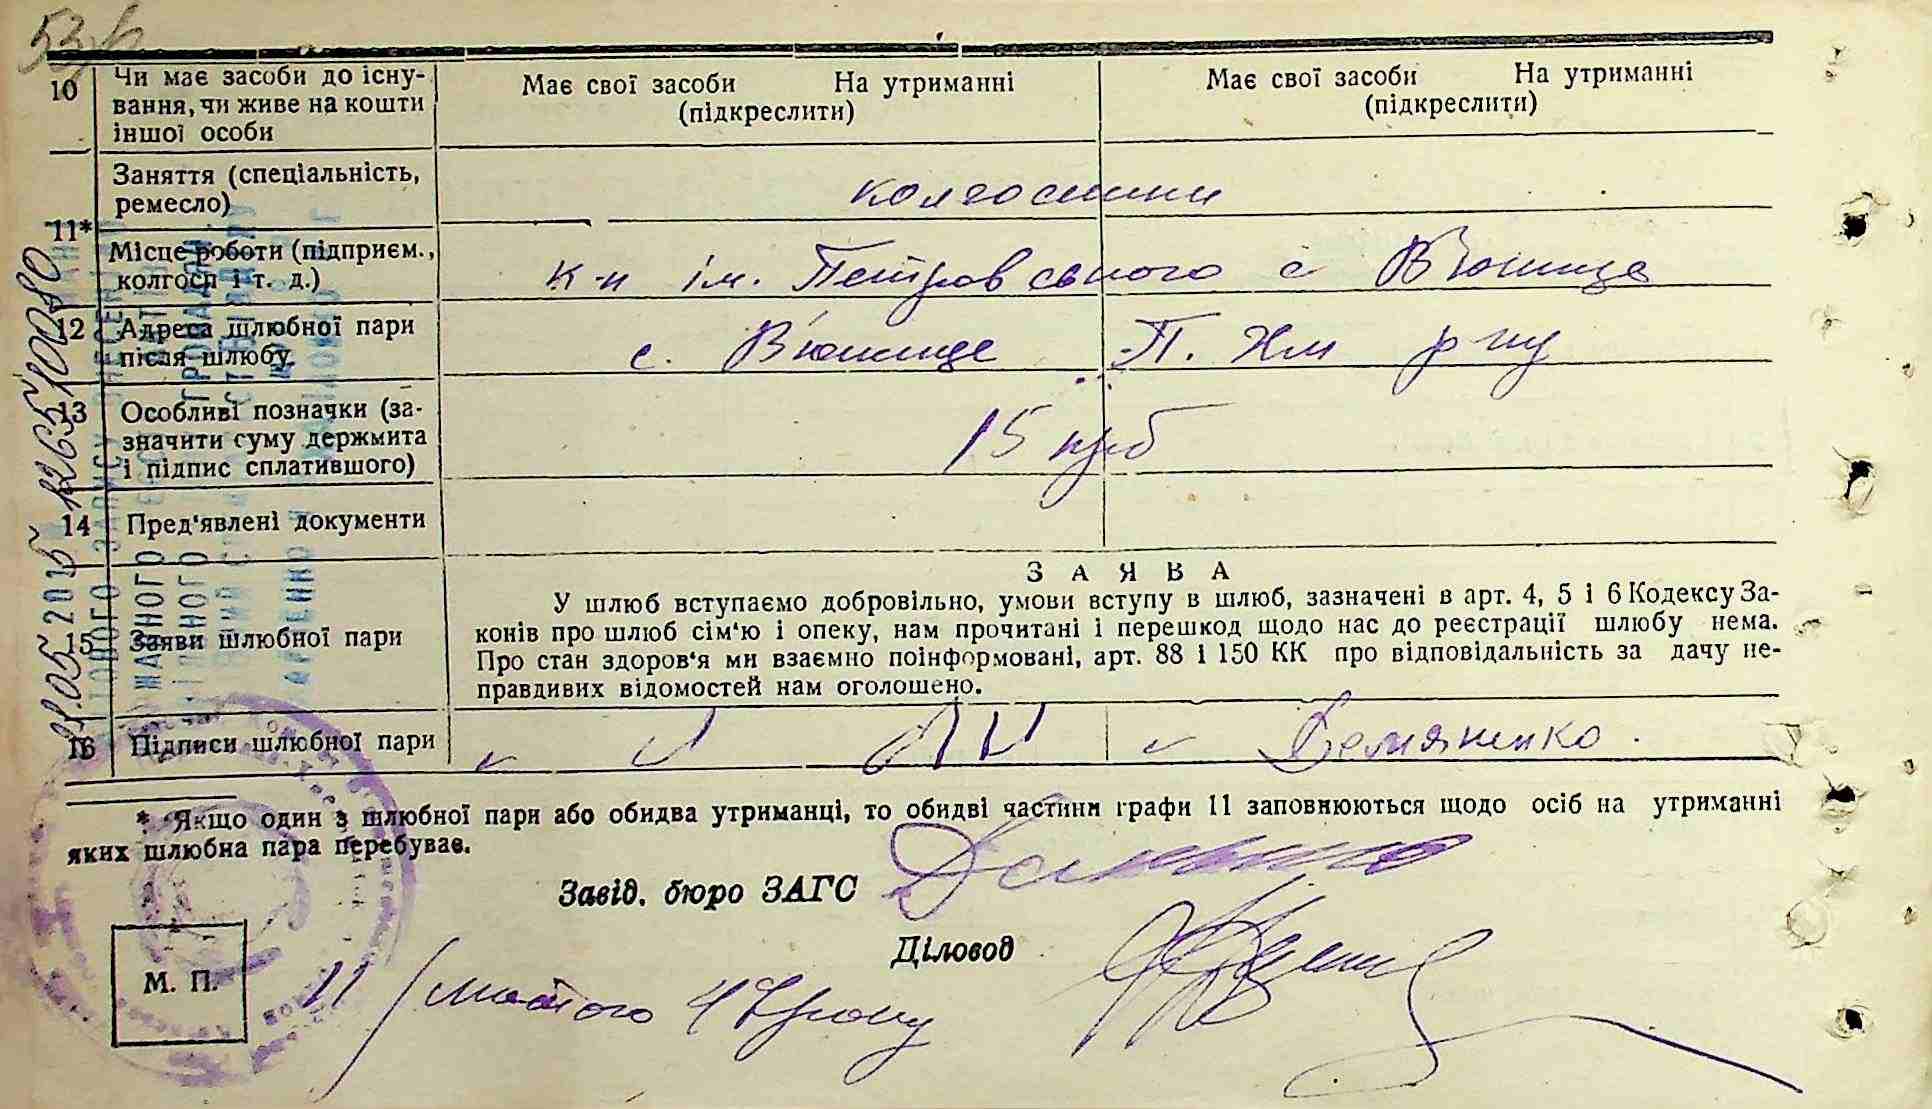 10
Чи має засоби до існу-
вання, чи живе на кошти
іншої особи
Має свої засоби На утриманні
(підкреслити)
Має свої засоби На утриманні
(підкреслити)
11*
Заняття (спеціальність,
ремесло)
колгоспники
Місце роботи (підприєм.,
колгосп і т. д.)
к-п ім. Петровського с В'юнище
12
Адреса шлюбної пари
після шлюбу
с. В'юнище П. Хм р-ну
13
Особливі позначки (за-
значити суму держмита
і підпис сплатившого)
15 крб
14
Пред'явлені документи
15
Заяви шлюбної пари
ЗАЯВА
У шлюб вступаємо добровільно, умови вступу в шлюб, зазначені в арт. 4, 5 і 6 Кодексу За-
конів про шлюб сім'ю і опеку, нам прочитані і перешкод щодо нас до реєстрації шлюбу нема.
Про стан здоров'я ми взаємно поінформовані, арт. 88 і 150 КК про відповідальність за дачу не-
правдивих відомостей нам оголошено.
16
Підписи шлюбної пари
Демяненко.
* Якщо один з шлюбної пари або обидва утриманці, то обидві частини графи 11 заповнюються щодо осіб на утриманні
яких шлюбна пара перебував.
Завід. бюро ЗАГС
Діловод
М. П.
11 лютого 47 року